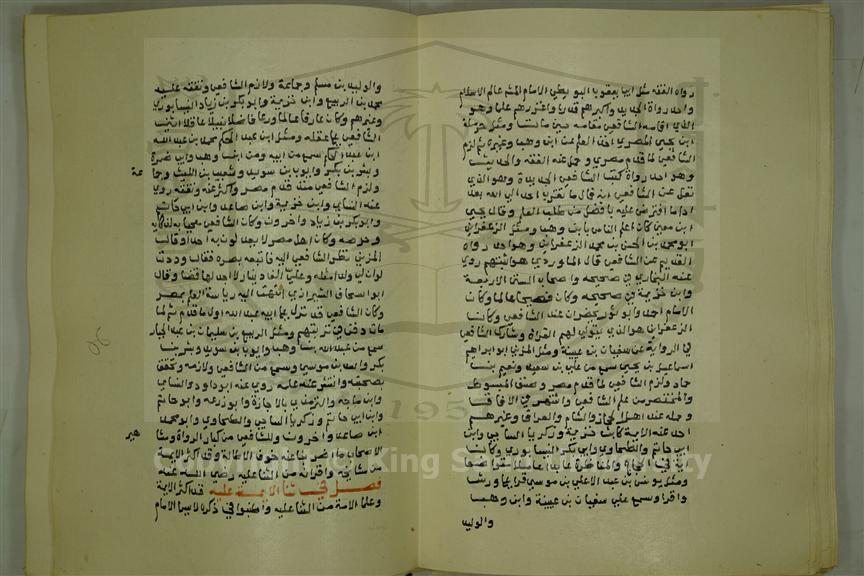 رواة الفقه مثل ابي يعقوب البويطي الامام المشهور عالم الاسلام
واحد رواة الجديد واكبرهم قدرا واغزرهم علما وهو
الذي اقامه الشافعي مقامه حين مات ومثل حرملة
ابن يحيي المصري اخذ العلم عن ابن وهب وغيره ثم لزم
الشافعي لما قدم مصر وحمل عنه الفقه والحديث
وهو احد رواة كتب الشافعي الجديدة وهو الذي
نقل عن الشافعي انه قال ما تقرب احد الي الله بعد
اداما افترض عليه بافضل من طلب العلم وقال يحيي
ابن معين كان اعلم الناس بابن وهب ومثل الزعفراني
ابو محمد بن الحسن بن محمد الزعفراني وهو احد رواة
القديم عن الشافعي قال الماوردي هو اثبتهم روي
عنه البخاري في صحيحه واصحاب السنن الاربعة
وابن خزيمة في صحيحه وكان فصيحا عالما وكان
الامام احمد وابو ثور يحضران عند الشافعي وكان
الزعفراني هو الذي يتولي لهم القراة وشارك الشافعي
في الرواية عن سفيان بن عيينة ومثل المزني ابو ابراهيم
اسماعيل بن يحيي سمع من علي بن سعيد ونعيم بن
حماد ولزم الشافعي لما قدم مصر وصنف المبسوط
والمختصر من علم الشافعي واشتهر في الافاق
وحمله عنه اهل الحجاز والشام والعراق وغيرهم
اخذ عنه الائمة كابن خزيمة وزكريا الساجي وابن
ابي حاتم والطحاوي وابي بكر النيسابوري وكان
اية في الحجاج والمناظرة عابدا عاملا متواضعا
ومثل يونس بن عبد الاعلي بن موسي قرا علي ورش
واقرا وسمع علي سفيان بن عيينة وابن وهب
والوليد
والوليد بن مسلم وجماعة ولازم الشافعي وتفقه عليه
محمد بن الربيع وابن خزيمة وابو بكر بن زياد النيسابوري
وغيرهم وكان عارفا عالما ورعا فاضلا نبيلا عاقلا اثني
الشافعي علي عقله ومثل ابن عبد الحكم محمد بن عبد الله
ابن عبد الحكم سمع من ابيه ومن ابن وهب وابي ضمرة
وبشر بن بكر وايوب بن سويد وشعيب بن الليث وجما
عة
ولزم الشافعي منذ قدم مصر واكثر عنه وتفقه روي
عنه النسائي وابن خزيمة وابن صاعد وابن ابي حاتم
وابو بكر بن زياد واخرون وكان الشافعي معجبا به لذكائه
وحرصه وكان اهل مصر لا يعدلون به احدا وقال
المزني نظر الشافعي اليه فاتبعه بصره فقال وددت
لو ان لي ولدا مثله وعلي الف دينار لا اجد لها قضا وقال
ابو اسحاق الشيرازي انتهت اليه رياسة العلم بمصر
وكان الشافعي قد نزل علي ابيه عبد الله اول ما قدم ثم لما
مات دفن في تربتهم ومثل الربيع بن سليمان بن عبد الجبار
سمع من عبد الله بن وهب وايوب بن سويد وبشر بن
بكر واسد بن موسي وسمع من الشافعي ولازمه وتحقق
بصحبته وانتشر عنه علمه روي عنه ابو داود والنسائي
وابن ماجه والترمذي بالاجازة وابو زرعه وابو حاتم
وابن ابي حاتم وزكريا الساجي والطحاوي وابو محمد
ابن صاعد واخرون وللشافعي من كبار الرواة ومشا
هير
الاصحاب ما اضربنا عنه خوف الاطالة وقد اكثر الائمة
من مشايخه واقرانه من الثنا عليه رضي الله عنه
فصل في ثنا الايمة عليه قد اكثر الايمة
وعلما الامة من الثنا عليه واطنبوا في ذكره لا سيما الامام
Copyright © King Saud University
195